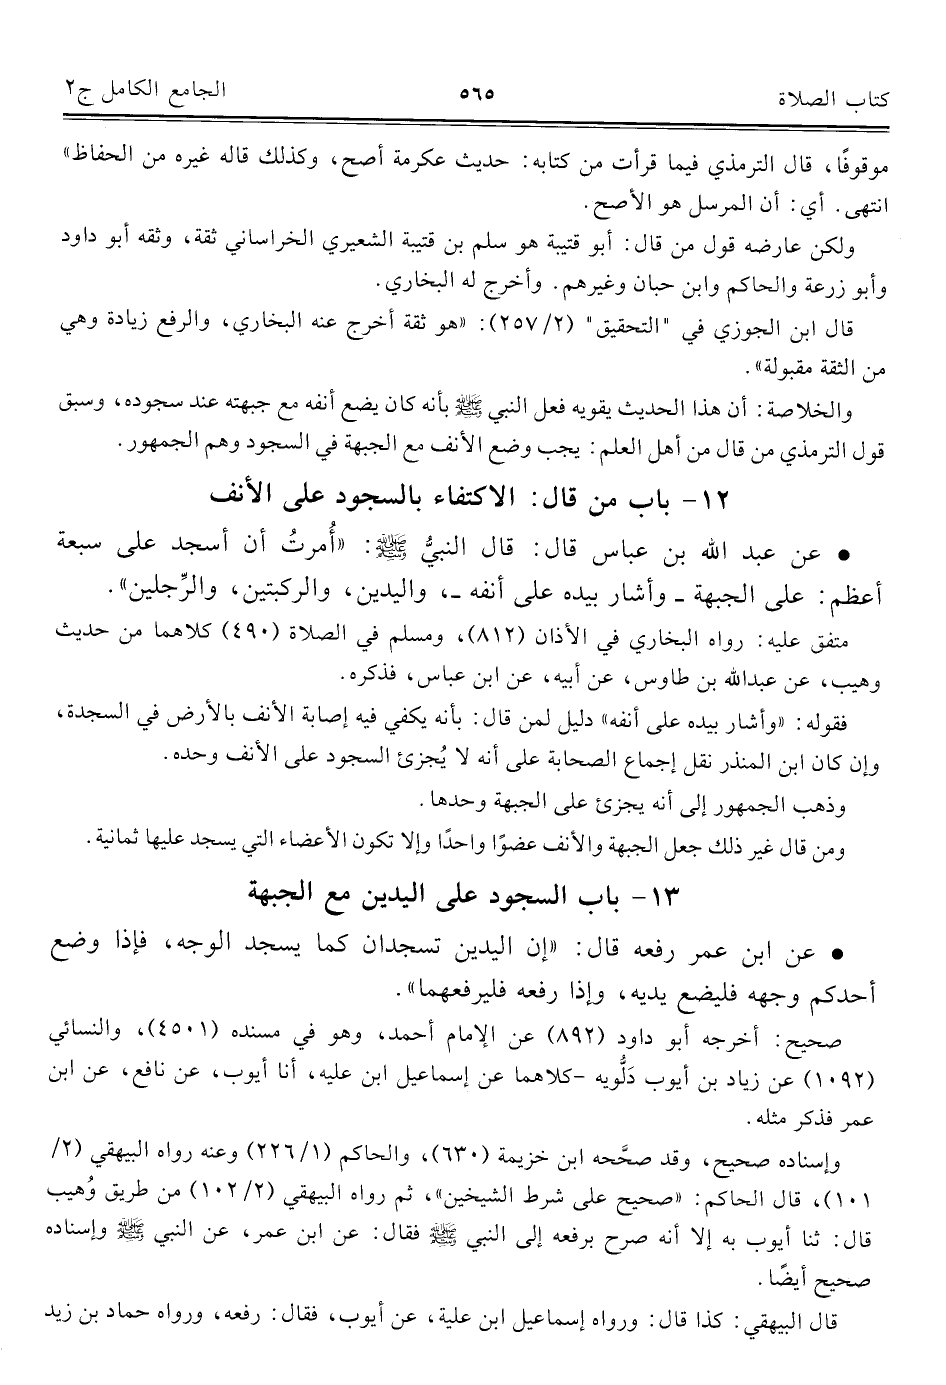 كتاب الصلاة ٥٦٥ الجامع الكامل ج٢
موقوفًا، قال الترمذي فيما قرأت من كتابه: حديث عكرمة أصح، وكذلك قاله غيره من الحفاظ»
انتهى. أي: أن المرسل هو الأصح.
ولكن عارضه قول من قال: أبو قتيبة هو سلم بن قتيبة الشعيري الخراساني ثقة، وثقه أبو داود
وأبو زرعة والحاكم وابن حبان وغيرهم. وأخرج له البخاري.
قال ابن الجوزي في "التحقيق" (٢/ ٢٥٧): «هو ثقة أخرج عنه البخاري، والرفع زيادة وهي
من الثقة مقبولة».
والخلاصة: أن هذا الحديث يقويه فعل النبي ﷺ بأنه كان يضع أنفه مع جبهته عند سجوده، وسبق
قول الترمذي من قال من أهل العلم: يجب وضع الأنف مع الجبهة في السجود وهم الجمهور.
١٢- باب من قال: الاكتفاء بالسجود على الأنف
• عن عبد الله بن عباس قال: قال النبيُّ ﷺ: «أُمرتُ أن أسجد على سبعة
أعظم: على الجبهة ـ وأشار بيده على أنفه ـ، واليدين، والركبتين، والرِّجلين».
متفق عليه: رواه البخاري في الأذان (٨١٢)، ومسلم في الصلاة (٤٩٠) كلاهما من حديث
وهيب، عن عبدالله بن طاوس، عن أبيه، عن ابن عباس، فذكره.
فقوله: «وأشار بيده على أنفه» دليل لمن قال: بأنه يكفي فيه إصابة الأنف بالأرض في السجدة،
وإن كان ابن المنذر نقل إجماع الصحابة على أنه لا يُجزئ السجود على الأنف وحده.
وذهب الجمهور إلى أنه يجزئ على الجبهة وحدها.
ومن قال غير ذلك جعل الجبهة والأنف عضوًا واحدًا وإلا تكون الأعضاء التي يسجد عليها ثمانية.
١٣- باب السجود على اليدين مع الجبهة
• عن ابن عمر رفعه قال: «إن اليدين تسجدان كما يسجد الوجه، فإذا وضع
أحدكم وجهه فليضع يديه، وإذا رفعه فليرفعهما».
صحيح: أخرجه أبو داود (٨٩٢) عن الإمام أحمد، وهو في مسنده (٤٥٠١)، والنسائي
(١٠٩٢) عن زياد بن أيوب دَلُّويه -كلاهما عن إسماعيل ابن عليه، أنا أيوب، عن نافع، عن ابن
عمر فذكر مثله.
وإسناده صحيح، وقد صحَّحه ابن خزيمة (٦٣٠)، والحاكم (١/ ٢٢٦) وعنه رواه البيهقي (٢/
١٠١)، قال الحاكم: «صحيح على شرط الشيخين»، ثم رواه البيهقي (٢/ ١٠٢) من طريق وُهيب
قال: ثنا أيوب به إلا أنه صرح برفعه إلى النبي ﷺ فقال: عن ابن عمر، عن النبي ﷺ وإسناده
صحيح أيضًا.
قال البيهقي: كذا قال: ورواه إسماعيل ابن علية، عن أيوب، فقال: رفعه، ورواه حماد بن زيد